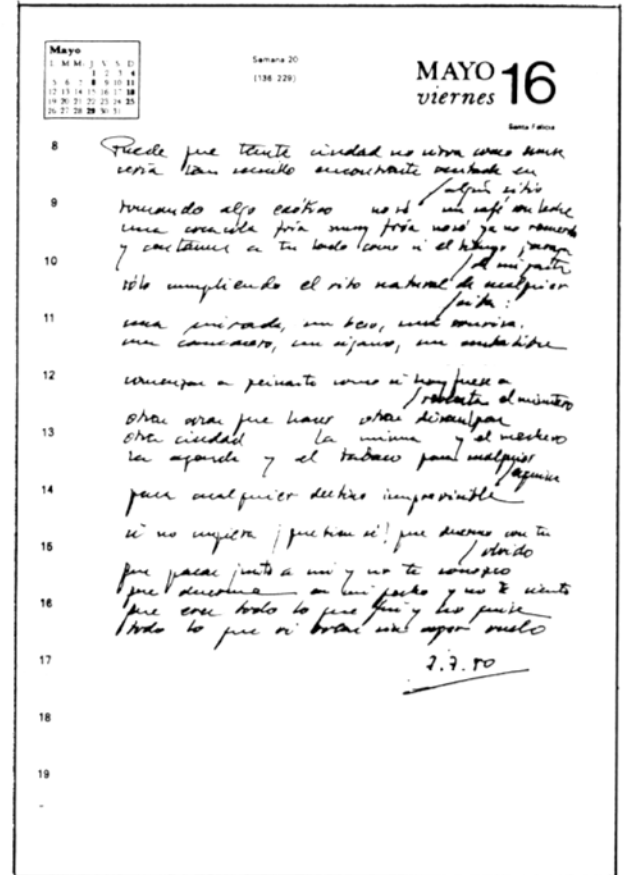 Mayo
L M M J V S D
1 2 3 4
5 6 7 8 9 10 11
12 13 14 15 16 17 18
19 20 21 22 23 24 25
26 27 28 29 30 31
Semana 20
(136 229)
MAYO 16
viernes
Santa Felicia
8
Puede que tanta ciudad no sirva como
sería tan sencillo encontrarte sentada en
/algún sitio
9
tomando algo exótico no sé un café con leche
una coca cola fría muy fría no sé ya no recuerdo
y sentarme a tu lado como si el tiempo
10
/de mi parte
sólo cumpliendo el rito natural de cualquier
/cita:
11
una mirada, un beso, una sonrisa.
un cigarro, un
12
comenzar a peinarte como si hoy fuese a
/el minutero
otras cosas que hacer otras disculpas
13
otra ciudad la misma y el mechero
la agenda y el tabaco para cualquier
/esquina
14
para cualquier destino imprevisible
15
si no supiera ¡que bien sé! que duermo con tu
/olvido
que pasas junto a mi y no te conozco
que duermes en mi pecho y no te siento
16
que eres todo lo que fui y no quise
todo lo que vi volar sin vuelo
17
7.7.80
18
19